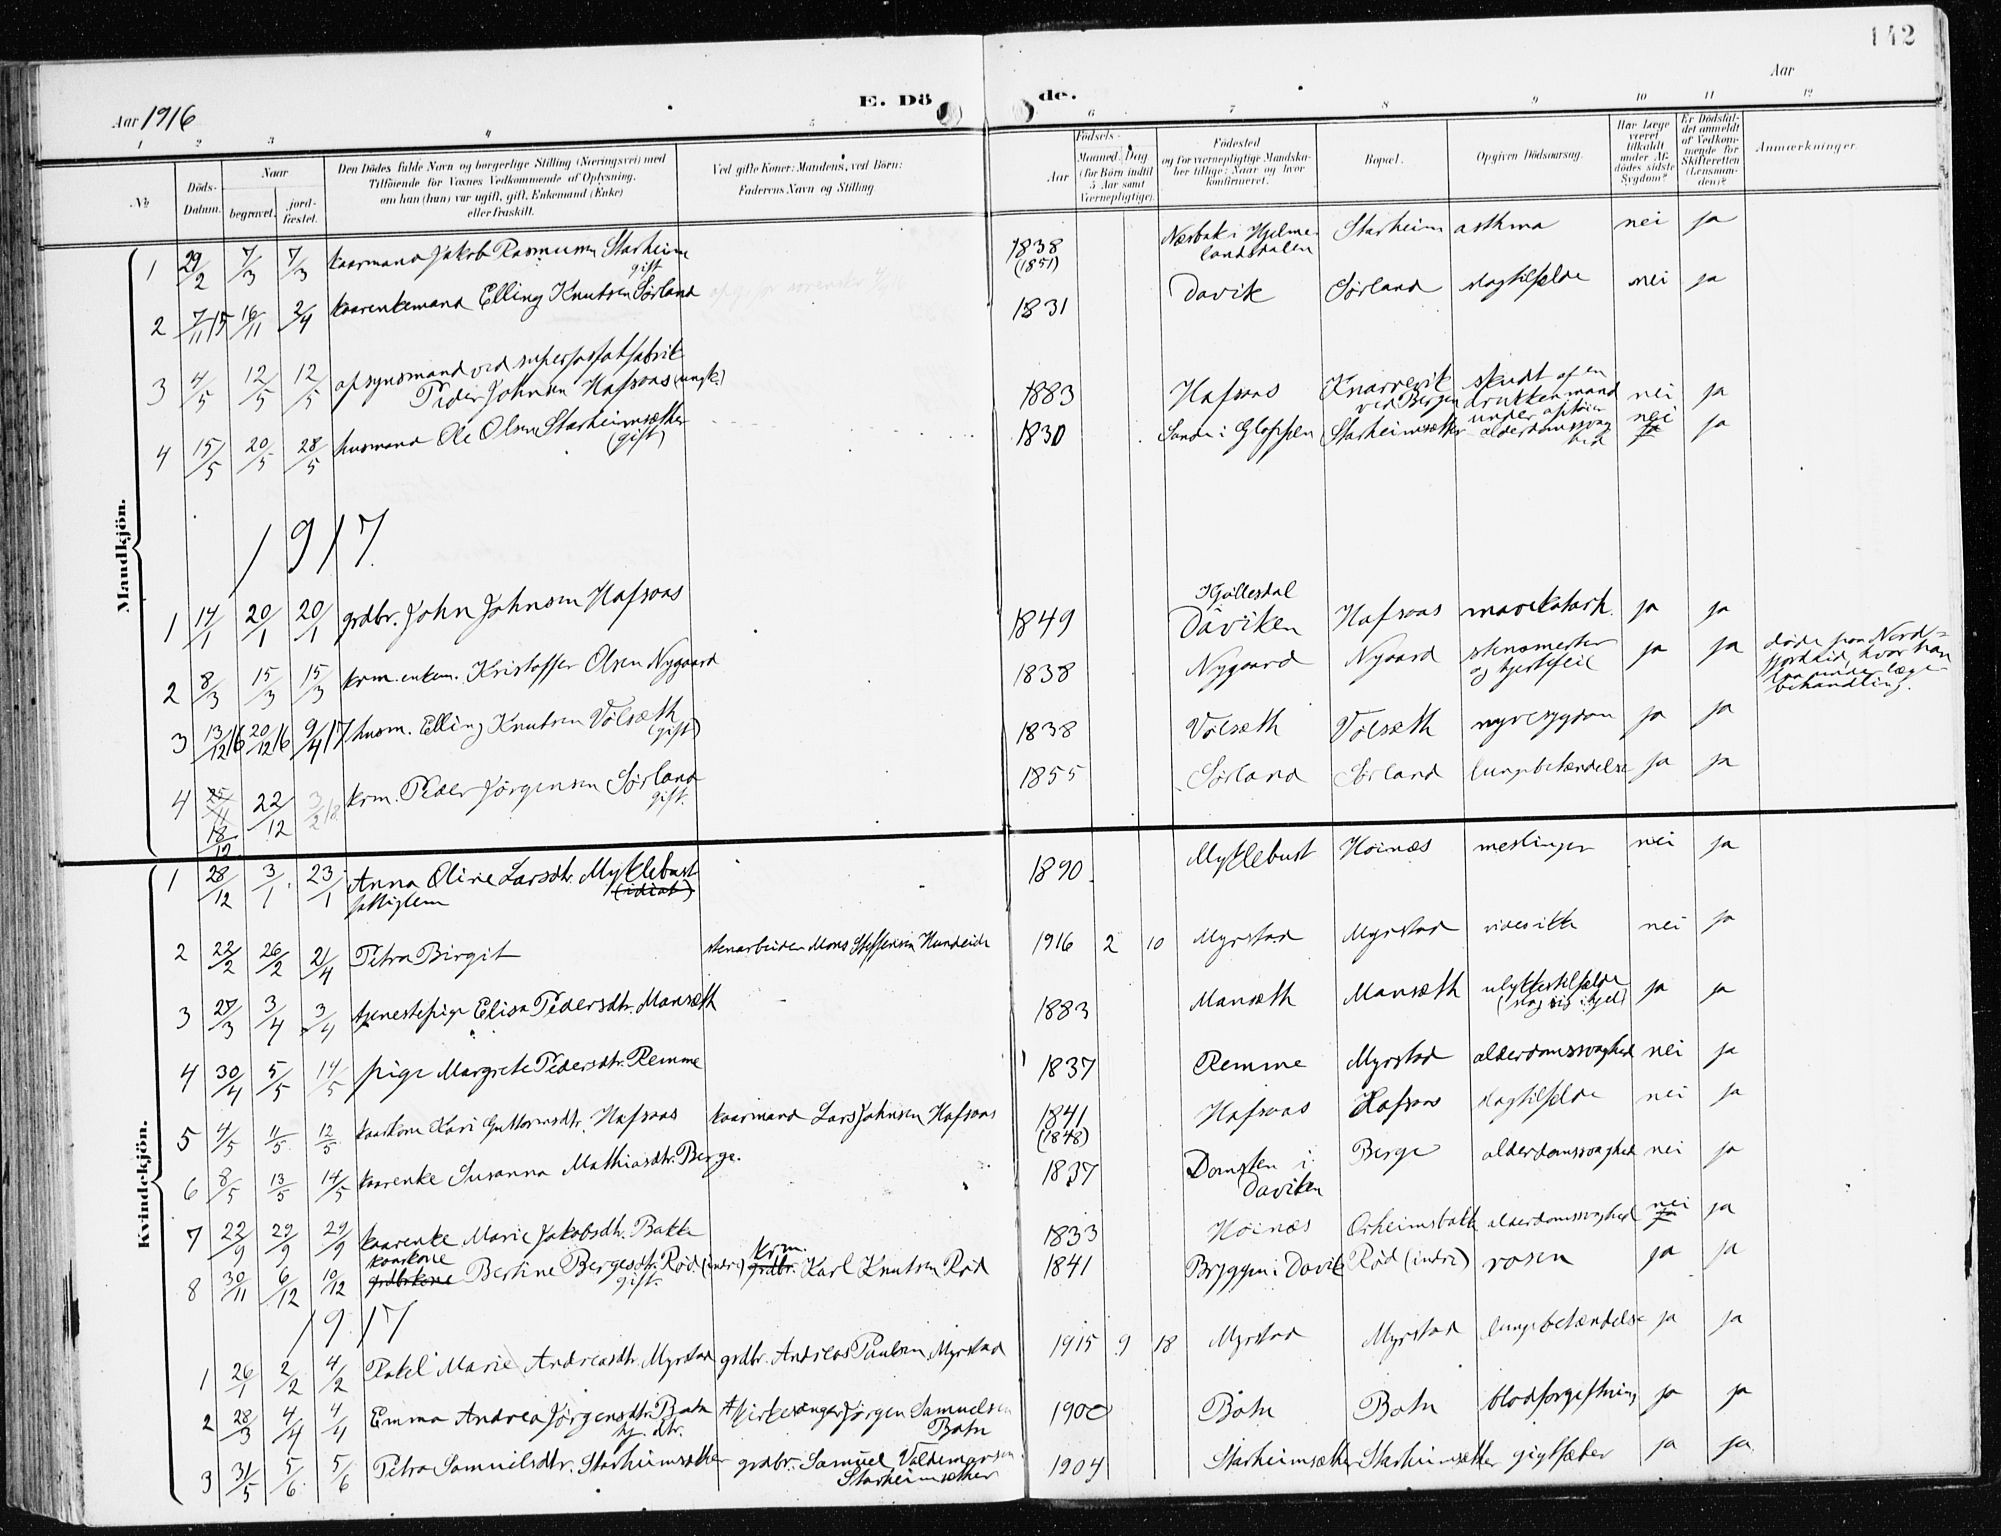 142
Aar 1916
E. Döde.
Aar
1 2 3 4 5 6 7 8 9 10 11 12
No
Döds-Datum.
Naar
begravet.
jordfæstet.
Den Dödes fulde Navn og borgerlige Stilling (Næringsvei) med
Tilföiende for Voxnes Vedkommende af Oplysning,
om han (hun) var ugift, gift, Enkemand (Enke)
eller fraskilt.
Ved gifte Koner: Mandens, ved Börn:
Faderens Navn og Stilling
Födsels-
Aar
Maaned. Dag
(for Börn indtil
5 Aar samt
Værnepligtige).
Födested
og for værnepligtige Mandska-
ber tillige: Naar og hvor
konfirmeret.
Bopæl.
Opgiven Dödsaarsag.
Har Læge
været
tilkaldt
under Af-
dödes sidste
Sygdom?
Er Dödsfal-
det anmeldt
af Vedkom-
mende for
Skifteretten
(Lensman-
den)?
Anmærkninger.
Mandkjön.
1 29/2 7/3 7/3 kaarmand Jakob Rasmussen Starheim gift 1838 (1851) Næsbak i Hjelmelandsdalen Starheim asthma nei ja
2 7/11 15 16/11 2/4 kaarenkemand Elling Knutsen Sörland 1831 Davik Sörland slagtilfælde nei ja
3 4/5 12/5 12/5 opsynsmand ved superfosfatfabrik Peder Johnsen Hafsaas (ungk.) 1883 Hafsaas Knarrevik ved Bergen skudt af en drukken mand under nei ja
4 15/5 20/5 28/5 husmand Ole Olsen Starheimsæther (gift) 1830 Sande i Gloppen Starheimsæther alderdomssvaghed nei ja ja
1917
1 14/1 20/1 20/1 grdbr. John Johnsen Hafsaas 1849 Kjöllesdal Daviken Hafsaas mavekatarh. ja ja
2 8/3 15/3 15/3 krm. enkem. Kristoffer Olsen Nygaard 1838 Nygaard Nygaard stensmerter og hjertefeil ja ja döde paa Nordfjordeid, hvor han laa under lægebehandling.
3 13/12 16 20/12 16 9/4 17 husm. Elling Knutsen Völsæth (gift) 1838 Völsæth Völsæth nyresygdom ja ja
4 25/11 18/12 22/12 3/2 18 krm. Peder Jörgensen Sörland gift. 1855 Sörland Sörland lungebetændelse ja ja
Kvindekjön.
1 28/12 3/1 23/1 Anna Oline Larsdtr. Myklebust (idiot) fattiglem 1890 Myklebust Höinæs meslinger nei ja
2 22/2 26/2 21/4 Petra Birgit stenarbeider Mons Steffensen Hundeide 1916 2 10 Myrstad Myrstad vides ikke nei ja
3 27/3 3/4 3/4 tjenestepige Elisa Pedersdtr. Mansæth 1883 Mansæth Mansæth ulykkestilfælde (slog sig ihjel) ja ja
4 30/4 5/5 14/5 pige Margrete Pedersdtr. Remme 1837 Remme Myrstad alderdomssvaghed nei ja
5 4/5 11/5 12/5 kaarkone Kari Guttormsdtr. Hafsaas kaarmand Lars Johnsen Hafsaas 1841 (1848) Hafsaas Hafsaas slagtilfælde nei ja
6 8/5 13/5 14/5 kaarenke Susanna Mathiasdtr. Berge. 1837 Domsten i Daviken Berge alderdomssvaghed nei ja
7 22/9 29/9 29/9 kaarenke Marie Jakobsdtr. Bakke 1833 Höinæs Orheimsbakk alderdomssvaghed nei ja ja
8 30/11 6/12 10/12 kaarkone grdbrkone Bertine Bergesdtr. Röd (indre) gift. krm. grdbr. Karl Knutsen Röd 1841 Bryggen i Davik Röd (indre) rosen ja ja
1917
1 26/1 2/2 4/2 Rakel Marie Andreasdtr. Myrstad grdbr. Andreas Paulsen Myrstad 1915 9 18 Myrstad Myrstad lungebetændelse ja ja
2 28/3 4/4 4/4 Emma Andrea Jörgensdtr. Botn dtr. kirkesanger Jörgen Samuelsen Botn 1900 Botn Botn blodforgiftning ja ja
3 31/5 5/6 5/6 Petra Samuelsdtr. Starheimsæther grdbr. Samuel Valdemarsen Starheimsæther 1904 Starheimsæther Starheimsæther gigtfæber ja ja